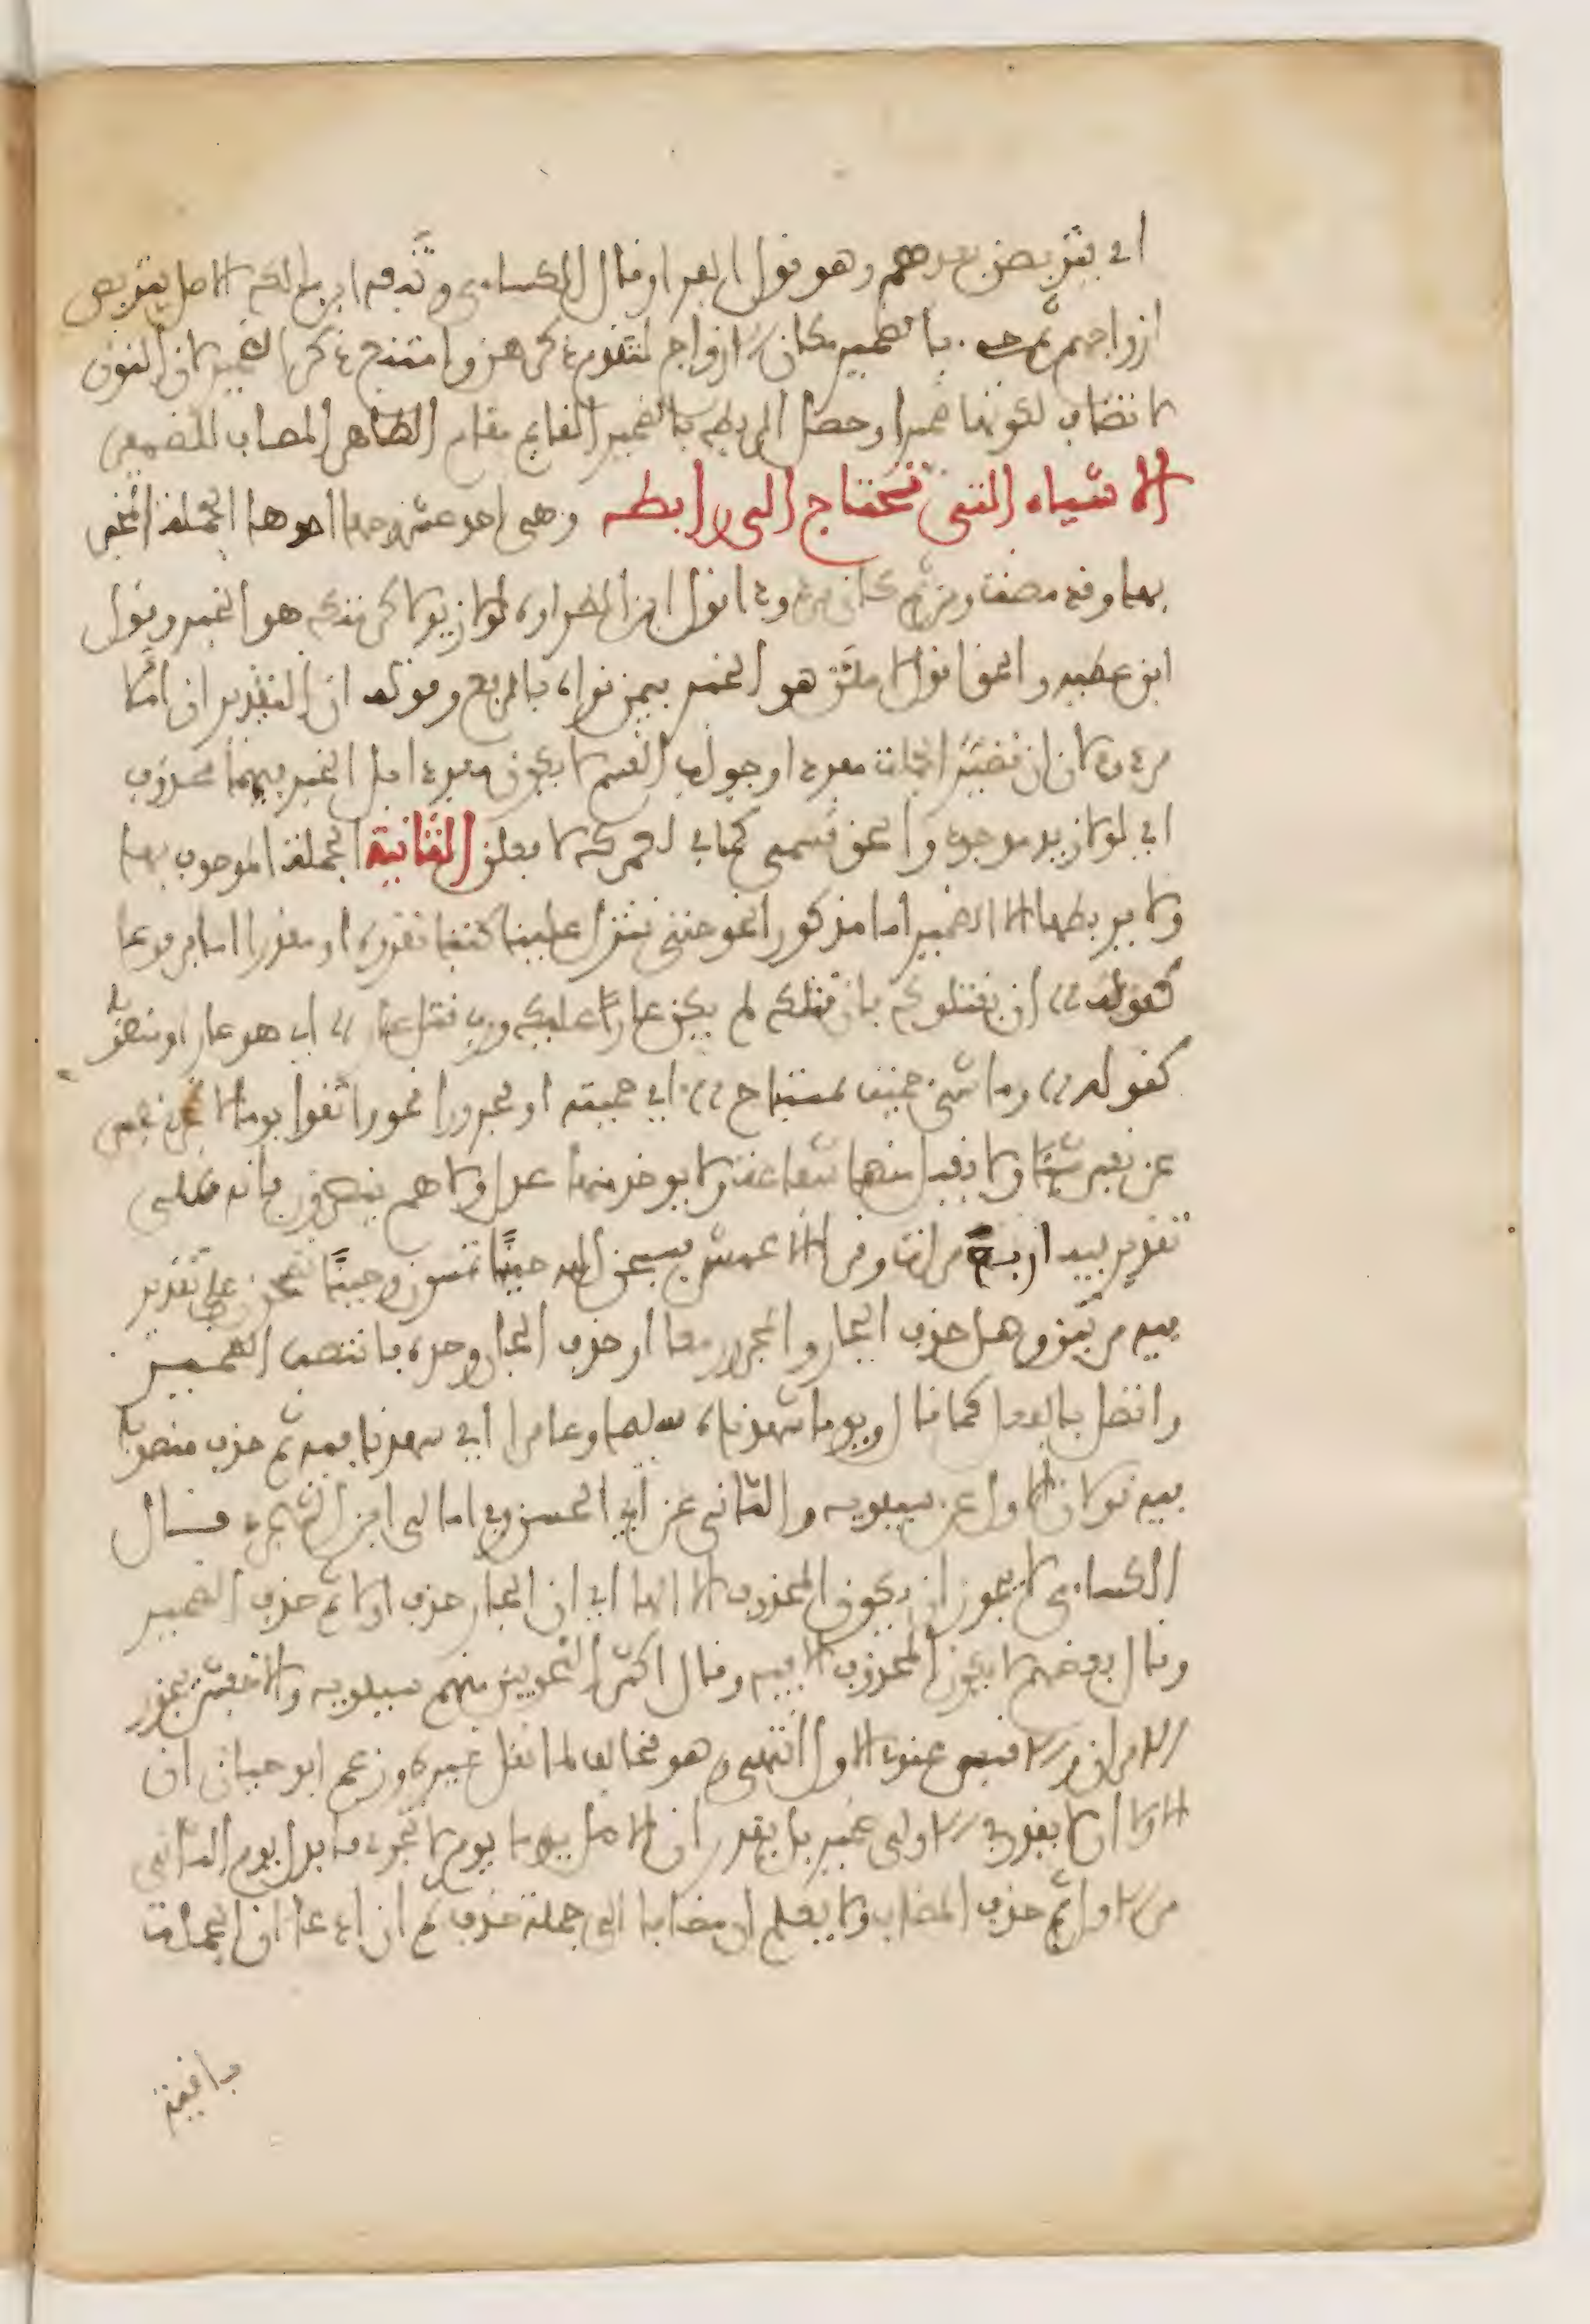 اي يتربصن بعدهم وهو قول الفراء وقال الكساءي وتبعه ابن ملك الاصل يتربص
ازواجهم ثم جيء بالضمير مكان الازواج لتقدم ذكرهن وامتنع ذكر الضمير لان النون
لا تضاف لكونها ضميرا وحصل الربط بالضمير القايم مقام الظاهر المضاف للضمير
الاشياء التي تحتاج الى رابطه وهي احد عشر احدها الجملة المخبر
بها وقد مضت ومن ثم كان مردودا قول ابن الطراوة لولا زيد لاكرمتك هو الخبر وقول
ابن عطيه والحق اقول لاملئن هو الخبر فيمن قراه بالرفع وقوله ان التقدير ان املأ
مردود لان ان تصير الجملة مفردا وجواب القسم لا يكون مفردا بل الخبر فيهما محذوف
اي لولا زيد موجود والحق قسمي كما في لعمرك لافعلن الثانية الجملة الموصوف بها
ولا يربطها الا الضمير اما مذكورا نحو حتى تنزل علينا كتابا نقرؤه او مقدرا اما مرفوعا
كقوله ان يقتلوك فان قتلك لم يكن عارا عليك ورب قتل عار اي هو عار او منصوبا
كقوله وما شيء حميت بمستباح اي حميته او مجرورا نحو واتقوا يوما لا تجزي نفس
عن نفس شيئا ولا يقبل منها شفاعة ولا يوخذ منها عدل ولا هم ينصرون فانه على
تقدير فيه اربع مرات وقرا الاعمش فسبحن الله حينًا تمسون وحينًا تصبحون على تقدير
فيه مرتين وهل حذف الجار والمجرور معا او حذف الجار وحده فانتصب الضمير
واتصل بالفعل كما قال ويوما شهدناه سليما وعامرا اي شهدنا فيه ثم حذف منصوبا
فيه قولان الاول عن سيبويه والثاني عن ابي الحسن وفي امالي ابن الشجري قال
الكساءي لا يجوز ان يكون المحذوف الا الها اي ان الجار حذف اولا ثم حذف الضمير
وقال بعضهم لا يكون المحذوف الا فيه وقال اكثر النحويين منهم سيبويه والاخفش يجوز
الامران والاقيس عندي الاول انتهى وهو مخالف لما نقل غيره وزعم ابو حيان ان
الاولى ان لا يقدر في الاولى ضمير بل يقدر ان الاصل يوما يوم لا تجزي فابدل يوم الثاني
من الاول ثم حذف المضاف ولا يعلم ان مضافا الى جملة حذف ثم ان ادعا ان الجملة
باقية